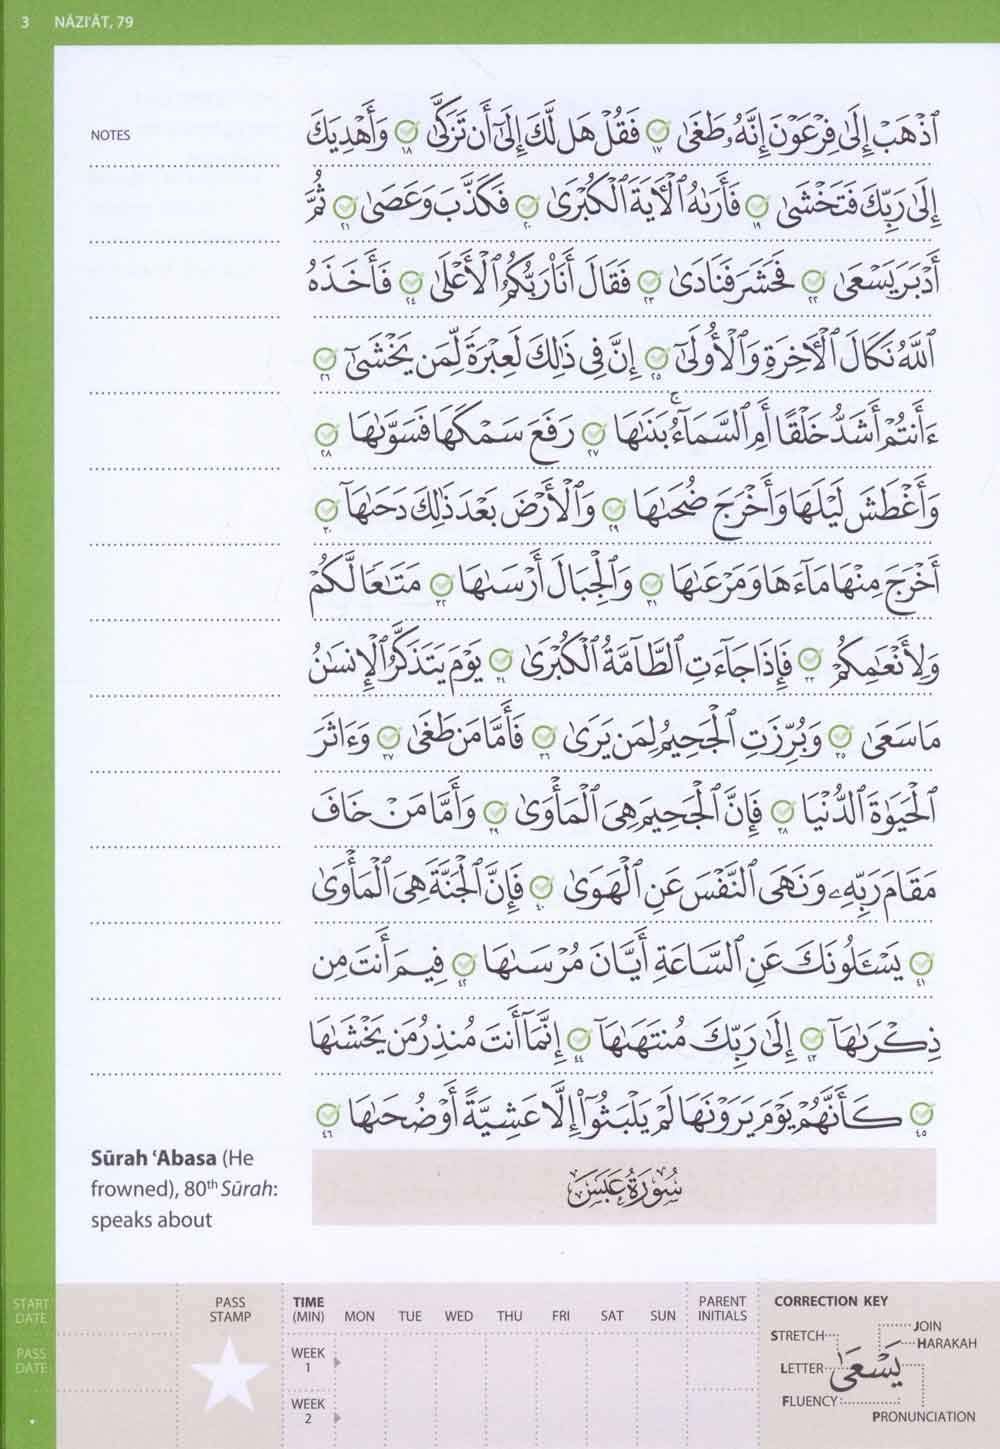 3 NĀZI'ĀT, 79
NOTES
ٱذْهَبْ إِلَىٰ فِرْعَوْنَ إِنَّهُۥ طَغَىٰ ١٧ فَقُلْ هَل لَّكَ إِلَىٰٓ أَن تَزَكَّىٰ ١٨ وَأَهْدِيَكَ
إِلَىٰ رَبِّكَ فَتَخْشَىٰ ١٩ فَأَرَىٰهُ ٱلْأٓيَةَ ٱلْكُبْرَىٰ ٢٠ فَكَذَّبَ وَعَصَىٰ ٢١ ثُمَّ
أَدْبَرَ يَسْعَىٰ ٢٢ فَحَشَرَ فَنَادَىٰ ٢٣ فَقَالَ أَنَا۠ رَبُّكُمُ ٱلْأَعْلَىٰ ٢٤ فَأَخَذَهُ
ٱللَّهُ نَكَالَ ٱلْأٓخِرَةِ وَٱلْأُولَىٰٓ ٢٥ إِنَّ فِى ذَٰلِكَ لَعِبْرَةً لِّمَن يَخْشَىٰٓ ٢٦
ءَأَنتُمْ أَشَدُّ خَلْقًا أَمِ ٱلسَّمَآءُ ۚ بَنَىٰهَا ٢٧ رَفَعَ سَمْكَهَا فَسَوَّىٰهَا ٢٨
وَأَغْطَشَ لَيْلَهَا وَأَخْرَجَ ضُحَىٰهَا ٢٩ وَٱلْأَرْضَ بَعْدَ ذَٰلِكَ دَحَىٰهَآ ٣٠
أَخْرَجَ مِنْهَا مَآءَهَا وَمَرْعَىٰهَا ٣١ وَٱلْجِبَالَ أَرْسَىٰهَا ٣٢ مَتَٰعًا لَّكُمْ
وَلِأَنْعَٰمِكُمْ ٣٣ فَإِذَا جَآءَتِ ٱلطَّآمَّةُ ٱلْكُبْرَىٰ ٣٤ يَوْمَ يَتَذَكَّرُ ٱلْإِنسَٰنُ
مَا سَعَىٰ ٣٥ وَبُرِّزَتِ ٱلْجَحِيمُ لِمَن يَرَىٰ ٣٦ فَأَمَّا مَن طَغَىٰ ٣٧ وَءَاثَرَ
ٱلْحَيَوٰةَ ٱلدُّنْيَا ٣٨ فَإِنَّ ٱلْجَحِيمَ هِىَ ٱلْمَأْوَىٰ ٣٩ وَأَمَّا مَنْ خَافَ
مَقَامَ رَبِّهِۦ وَنَهَى ٱلنَّفْسَ عَنِ ٱلْهَوَىٰ ٤٠ فَإِنَّ ٱلْجَنَّةَ هِىَ ٱلْمَأْوَىٰ
٤١ يَسْـَٔلُونَكَ عَنِ ٱلسَّاعَةِ أَيَّانَ مُرْسَىٰهَا ٤٢ فِيمَ أَنتَ مِن
ذِكْرَىٰهَآ ٤٣ إِلَىٰ رَبِّكَ مُنتَهَىٰهَآ ٤٤ إِنَّمَآ أَنتَ مُنذِرُ مَن يَخْشَىٰهَا
٤٥ كَأَنَّهُمْ يَوْمَ يَرَوْنَهَا لَمْ يَلْبَثُوٓا۟ إِلَّا عَشِيَّةً أَوْ ضُحَىٰهَا ٤٦
سُورَةُ عَبَسَ
Sūrah ‘Abasa (He
frowned), 80th Sūrah:
speaks about
START
DATE
PASS
DATE
PASS
STAMP
TIME
(MIN) MON TUE WED THU FRI SAT SUN
WEEK
1
WEEK
2
PARENT
INITIALS
CORRECTION KEY
STRETCH
JOIN
HARAKAH
LETTER
يَسْعَىٰ
FLUENCY
PRONUNCIATION